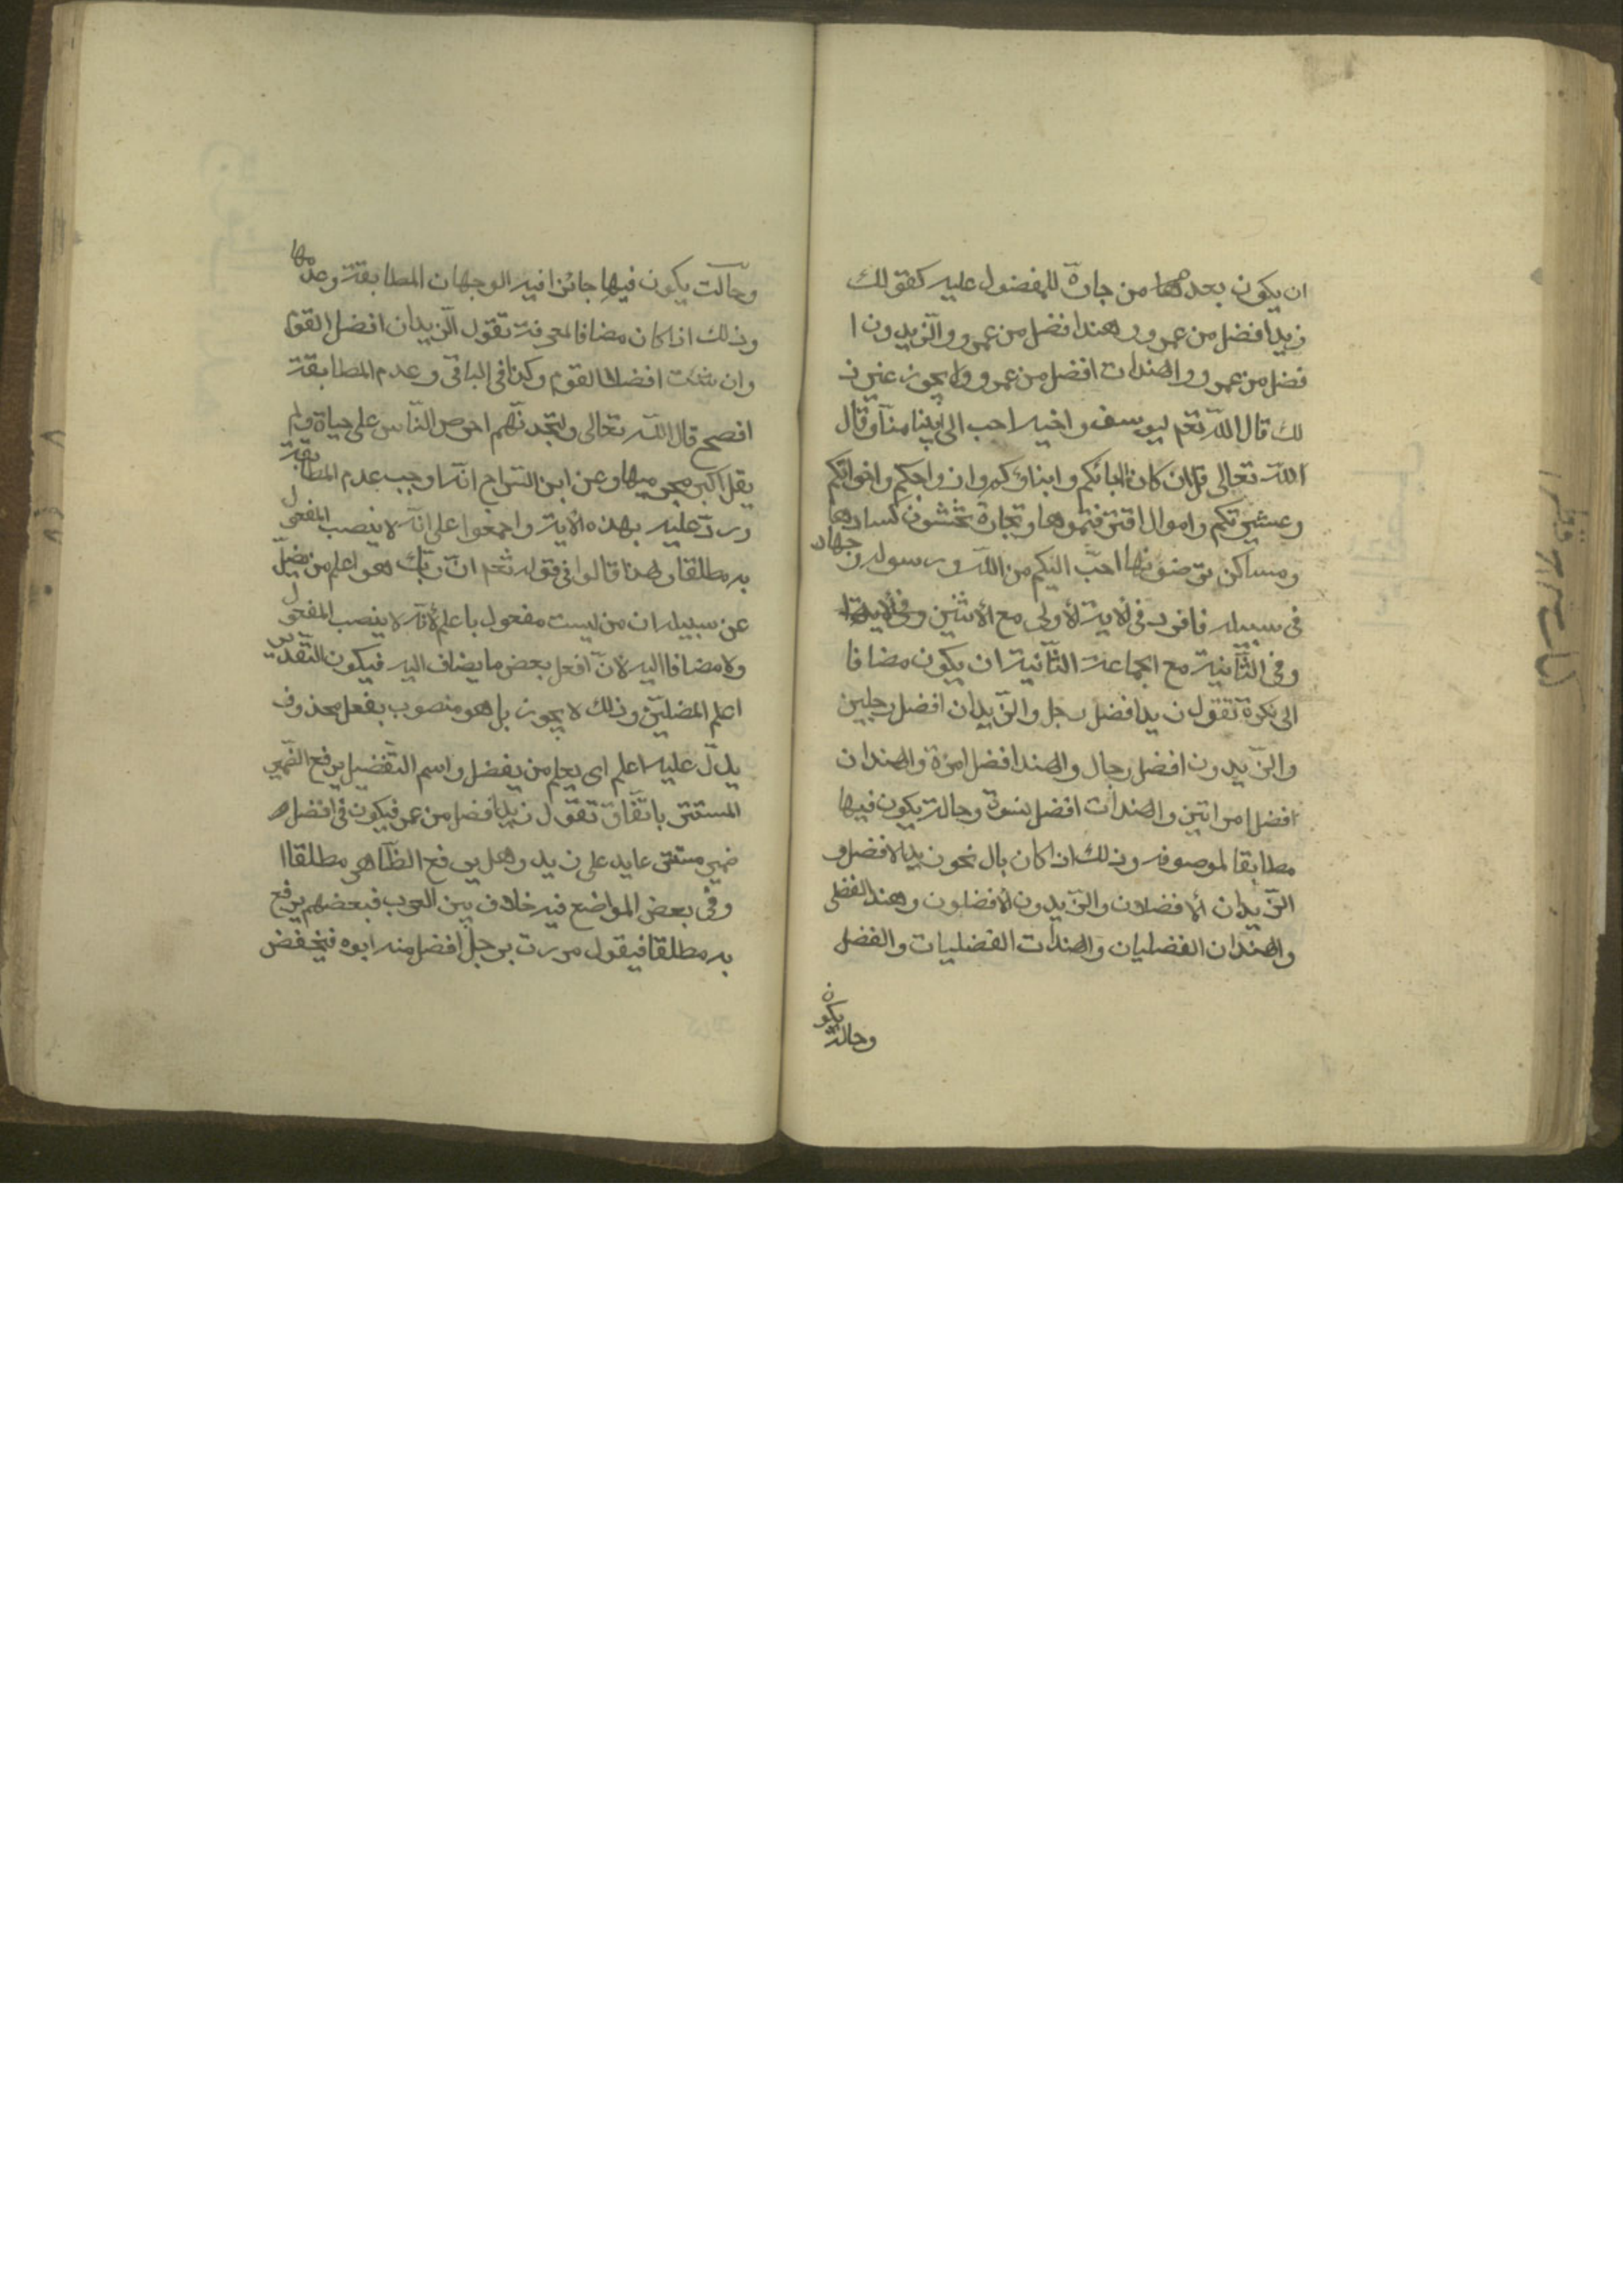 ان يكون بعدها من جارة للمفضول عليه كقولك
زيد افضل من عمرو وهند افضل من عمرو والزيدون ا
فضل من عمرو والهندات افضل من عمرو ولا يجوز غير ذ
لك قال الله تعم ليوسف واخيه احب الى ابينا منا وقال
الله تعالى قل ان كان ابائكم وابناؤكم وازواجكم واخوانكم
وعشيرتكم واموال اقترفتموها وتجارة تخشون كسادها
ومساكن ترضونها احبّ اليكم من الله ورسوله وجهاد
فى سبيله فافرد فى الاية الأولى مع الأثنين
وفى الثّانية مع الجماعة الثّانية ان يكون مضافا
الى نكرة تقول زيد افضل رجل والزّيدان افضل رجلين
والزّيدون افضل رجال والهند افضل امرة والهندان
افضل امراتين والهندات افضل نسوة وحالة يكون فيها
مطابقا لموصوفه وذلك اذا كان بال نحو زيد الافضل و
الزّيدان الافضلان والزّيدون الافضلون وهند الفضلى
والهندان الفضليان والهندات الفضليات والفضل
وحالة يكون
وحالت يكون فيها جائزا فيه الوجهان المطابقة وعدمها
وذلك اذا كان مضافا لمعرفة تقول الزّيدان افضل القوم
وان شئت افضلا القوم وكذا فى الباقى وعدم المطابقة
افصح قال الله تعالى ولتجدنّهم احرص النّاس على حياة ولم
يقل اكبر مجرميها وعن ابن السّراج انّه اوجب عدم المطابقة
وردّ عليه بهذه الأية واجمعوا على انّه لا ينصب المفعول
به مطلقا ولهذا قالوا فى قوله تعم انّ ربّك هو اعلم من يضلّ
عن سبيله ان من ليست مفعول باعلم لأنّه لا ينصب المفعول
ولا مضافا اليه لانّ افعل بعض ما يضاف اليه فيكون التّقدير
اعلم المضلّين وذلك لا يجوز بل هو منصوب بفعل محذوف
يدلّ عليه اعلم اى يعلم من يفضل واسم التّفضيل يرفع الضّمير
المستتر باتّفاق تقول زيد افضل من عمر فيكون فى افضل
ضمير مستتر عايد على زيد وهل يرفع الظّاهر مطلقا ا
وفى بعض المواضع فيه خلاف بين العرب فبعضهم يرفع
به مطلقا فيقول مررت برجل افضل منه ابوه فيخفض